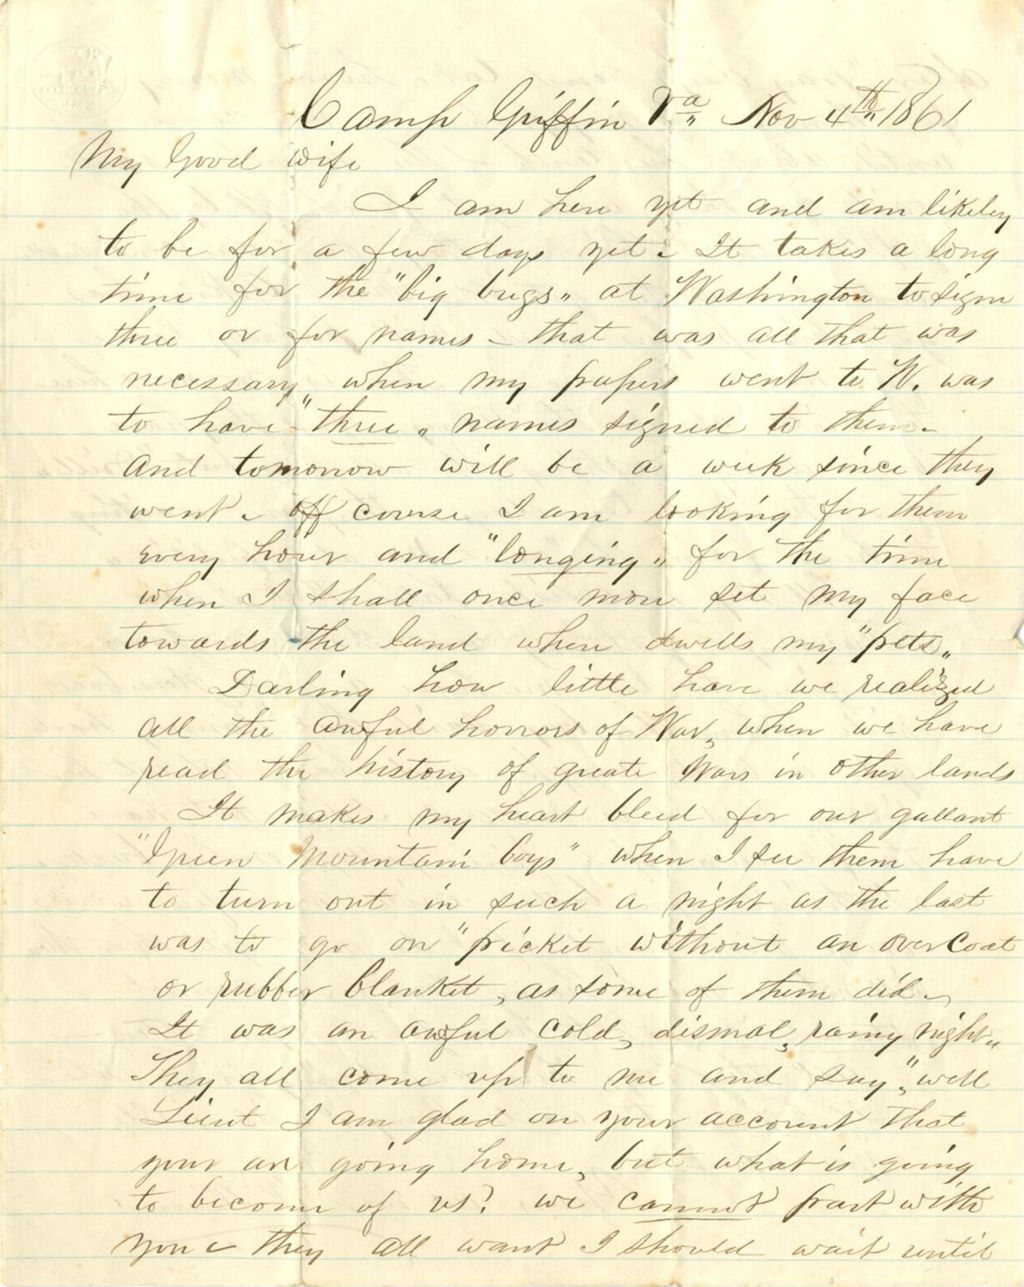 Camp Griffin Va Nov 4th 1861
My Good Wife
I am here yet and am likely
to be for a few days yet. It takes a long
time for the "big bugs" at Washington to sign
three or for names - that was all that was
necessary, when my papers went to W. was
to have "three" names signed to them -
And tomorrow will be a week since they
went - off course I am looking for them
every hour and "longing" for the time
when I shall once more set my face
towards the land where dwells my "pets"
Darling how little have we realized
all the awful horrors of War, when we have
read the history of greate Wars in other lands
It makes my heart bleed for our gallant
"Green Mountain boys" when I see them have
to turn out in such a night as the last
was to go on "picket without an overCoat
or rubber blanket, as some of them did -
It was an awful cold, dismal, rainy night.
They all come up to me and say, "well
Lieut I am glad on your account that
your are going home, but what is going
to become of us? we cannot part with
you - they all want I should wait until